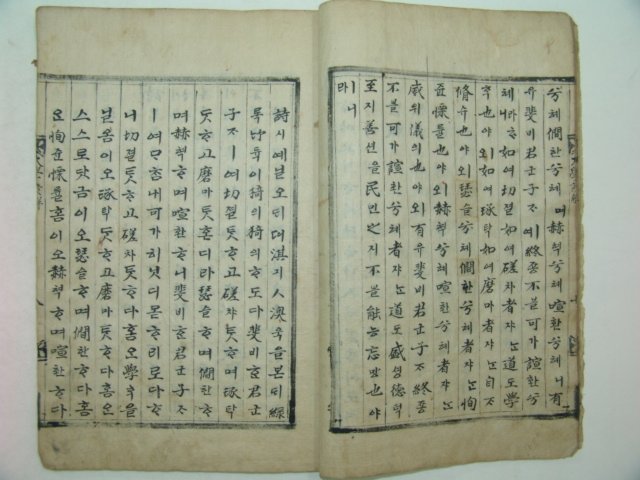 兮혜僩한兮혜며赫혁兮혜喧한兮혜니有
유斐비君군子ᄌᆞ예終죵不블可가諠한兮
혜니라ᄒᆞ如여切졀如여磋차者쟈ᄂᆞᆫ道도學
ᄒᆞᆨ也야ㅣ오如여琢탁如여磨마者쟈ᄂᆞᆫ自ᄌᆞ
脩슈也야ㅣ오瑟슬兮혜僩한兮혜者쟈ᄂᆞᆫ恂
쥰慄률也야ㅣ오赫혁兮혜喧한兮혜者쟈ᄂᆞᆫ
威위儀의也야ㅣ오有유斐비君군子ᄌᆞ終죵
不블可가諠한兮혜者쟈ᄂᆞᆫ道도盛셩德덕
至지善션을民민之지不블能능忘망也야
ㅣ니
라
詩시예닐오ᄃᆡ뎌淇지人澳욱을본ᄃᆡ綠
록竹듁이猗의猗의ᄒᆞ도다斐비ᄒᆞᆫ君군
子ᄌᆞㅣ여切졀ᄐᆞᆺᄒᆞ고磋차ᄐᆞᆺᄒᆞ며琢탁
ᄐᆞᆺᄒᆞ고磨마ᄐᆞᆺᄒᆞᆫ디라瑟슬ᄒᆞ며僩한ᄒᆞ
며赫혁ᄒᆞ며喧한ᄒᆞ니斐비ᄒᆞᆫ君군子ᄌᆞ
ㅣ여ᄆᆞᄎᆞᆷ내可가히닛디몯ᄒᆞ리로다ᄒᆞ
니切졀ᄐᆞᆺᄒᆞ고磋차ᄐᆞᆺᄒᆞ다홈오學ᄒᆞᆨ을
닐옴이오琢탁ᄐᆞᆺᄒᆞ고磨마ᄐᆞᆺᄒᆞ다홈오
스스로닷금이오瑟슬ᄒᆞ며僩한ᄒᆞ다홈
오恂쥰慄률홈이오赫혁ᄒᆞ며喧한ᄒᆞ다